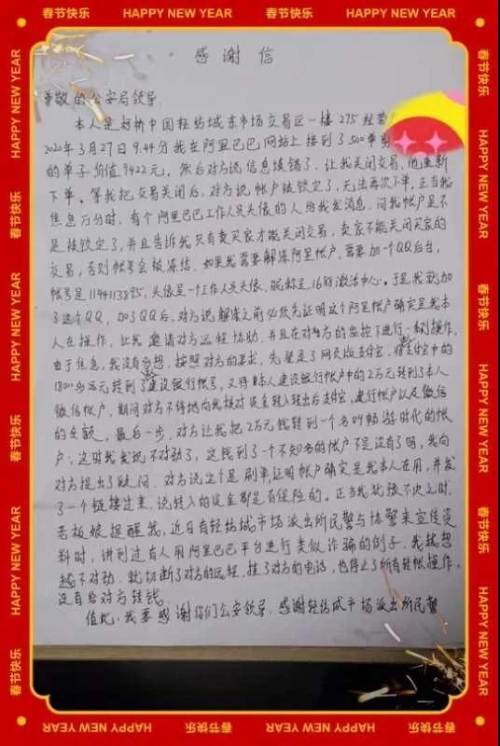 春节快乐
HAPPY NEW YEAR
春节快乐
HAPPY NEW YEAR
春节快乐
感谢信
尊敬的公安局领导
本人是柯桥中国轻纺城东市场交易区一楼275经营
2020年3月27日9.44分我在阿里巴巴网站上接到了500条
的单子价值9422元，然后对方说信息填错了，让我关闭交易，他重新
下单。等我把交易关闭后，对方说帐户被锁定了，无法再次下单，正当我
焦急万分时，有个阿里巴巴工作人员头像的人给我发消息，问我帐户是不
是被锁定了，并且告诉我只有卖买家才能关闭交易，卖家不能关闭买家的
交易，否则帐号会被冻结，如果我需要解除阿里帐户，需要加一个QQ后台，
帐号是，头像是一个工作人员头像，昵称是1688激活中心。于是我就加
了这个QQ，加了QQ后，对方说，解除之前必须先证明这个阿里帐户确实是我本
人在操作，让我邀请对方远程协助，并且在对方的监控下进行一系列操作，
由于焦急，我没有多想，按照对方的要求，先登录了网页版支付宝，将支付宝中的
18000多元转到了建设银行帐号，又将本人建设银行帐户中的2万元转到了本人
微信帐户，期间对方不停地向我核对转出后支付宝，建行帐户以及微信
的余额。最后一步，对方让我把2万元钱转到一个名叫畅游时代的帐
户，这时我发现不对劲了，这钱到了一个不知名的帐户不是没有了吗，我向
对方提出了疑问，对方说这个是刷单证明帐户确实是我本人在用，并发
了一个链接过来，说转入的资金都是有保险的。正当我犹豫不决之时，
老板娘提醒我，近日有轻纺城市场派出所民警与协警来宣传资
料时，讲到过有人用阿里巴巴平台进行类似诈骗的例子，我越想
越不对劲，就切断了对方的远程，挂了对方的电话，也停止了所有转帐操作，
没有给对方转钱。
值此，我要感谢你们公安领导，感谢轻纺城市场派出所民警
HAPPY NEW YEAR
春节快乐
HAPPY NEW YEAR
春节快乐
HAPPY NEW YEAR
春节快乐
HAPPY NEW YEAR
HAPPY NEW YEAR
春节快乐
HAPPY NEW YEAR
春节快乐
HAPPY NEW YEAR
春节快乐
HAPPY NEW YEAR
春节快乐
HAPPY NEW YEAR
春节快乐
HAPPY NEW YEAR